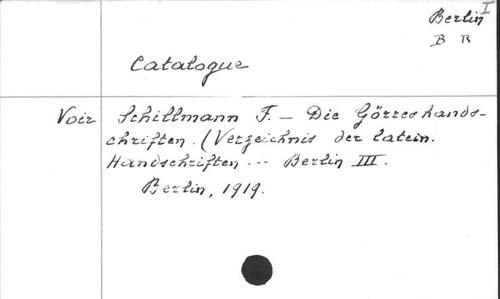 Berlin I
B R
Catalogue
Voir Schillmann F. — Die Görreshands-
chriften. (Verzeichnis der latein.
Handschriften ... Berlin III.
Berlin, 1919.